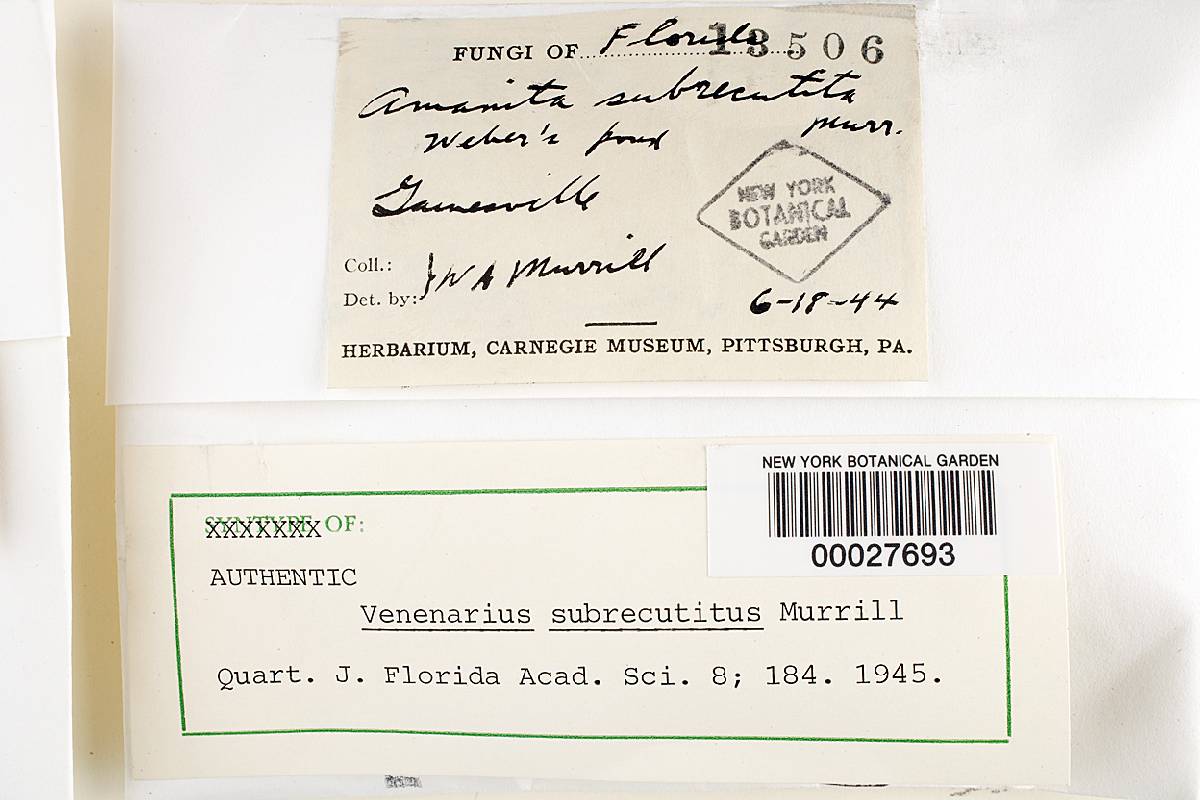 FUNGI OF Florida 13506
Amanita subrecutita
Murr.
Weber's pond
Gainesville
NEW YORK
BOTANICAL
GARDEN
Coll.:
Det. by: } W A Murrill
6-18-44
HERBARIUM, CARNEGIE MUSEUM, PITTSBURGH, PA.
NEW YORK BOTANICAL GARDEN
00027693
SYNTYPE OF:
AUTHENTIC
Venenarius subrecutitus Murrill
Quart. J. Florida Acad. Sci. 8; 184. 1945.